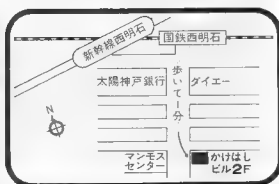 新幹線西明石
国鉄西明石
太陽神戸銀行
歩いて1分
ダイエー
N
マンモス
センター
かけはし
ビル2F